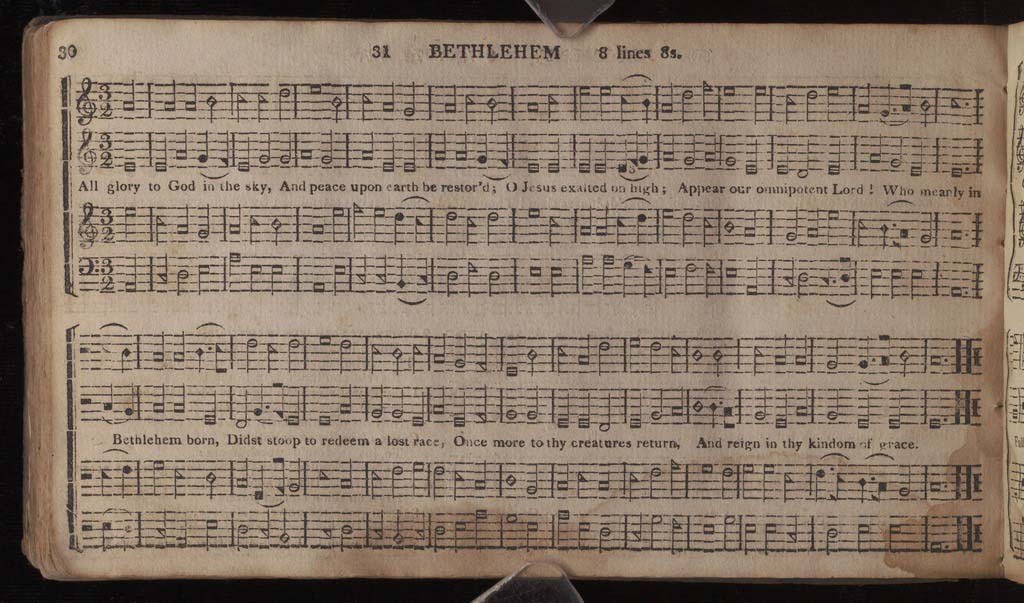 30 31 BETHLEHEM 8 lines 8s.
3
2
3
2
All glory to God in the sky, And peace upon earth be restor'd; O Jesus exalted on high; Appear our omnipotent Lord ! Who mearly in
3
2
3
2
Bethlehem born, Didst stoop to redeem a lost race, Once more to thy creatures return, And reign in thy kindom of grace.